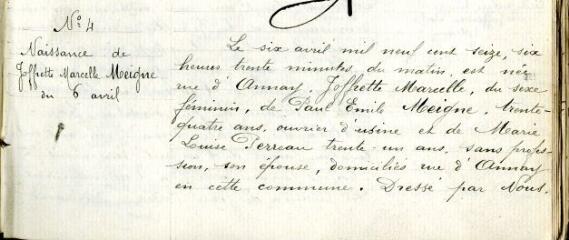 N° 4
Naissance de
Joffrette Marcelle Meigne
du 6 avril
Le six avril mil neuf cent seize, six
heures trente minutes du matin est née
rue d'Annay, Joffrette Marcelle, du sexe
féminin, de Paul Emile Meigne, trente-
quatre ans, ouvrier d'usine et de Marie
Louise Perreau trente-un ans, sans profes-
sion, son épouse, domiciliés rue d'Annay
en cette commune. Dressé par Nous,